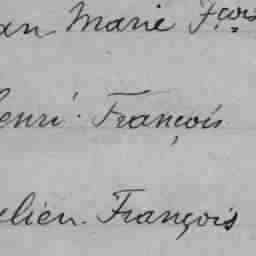 an Marie Fçois
enri François
lien François